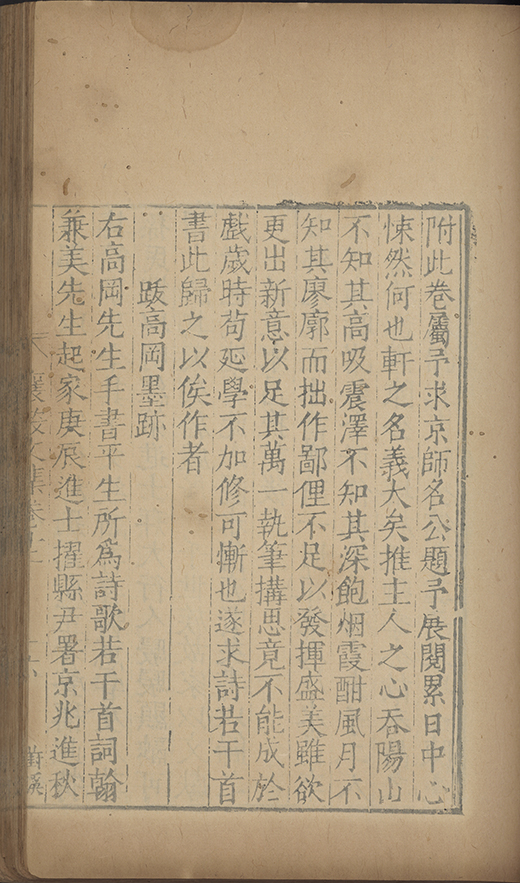 附此卷屬予求京師名公題予展閱累日中心
悚然何也軒之名義大矣推主人之心吞陽山
不知其高吸震澤不知其深飽烟霞酣風月不
知其廖廓而拙作鄙俚不足以發揮盛美雖欲
更出新意以足其萬一執筆搆思竟不能成於
戲歲時苟延學不加修可慚也遂求詩若干首
書此歸之以俟作者
跋高岡墨跡
右高岡先生手書平生所為詩歌若干首詞翰
兼美先生起家庚辰進士擢縣尹署京兆進秋
襄毅文集卷十